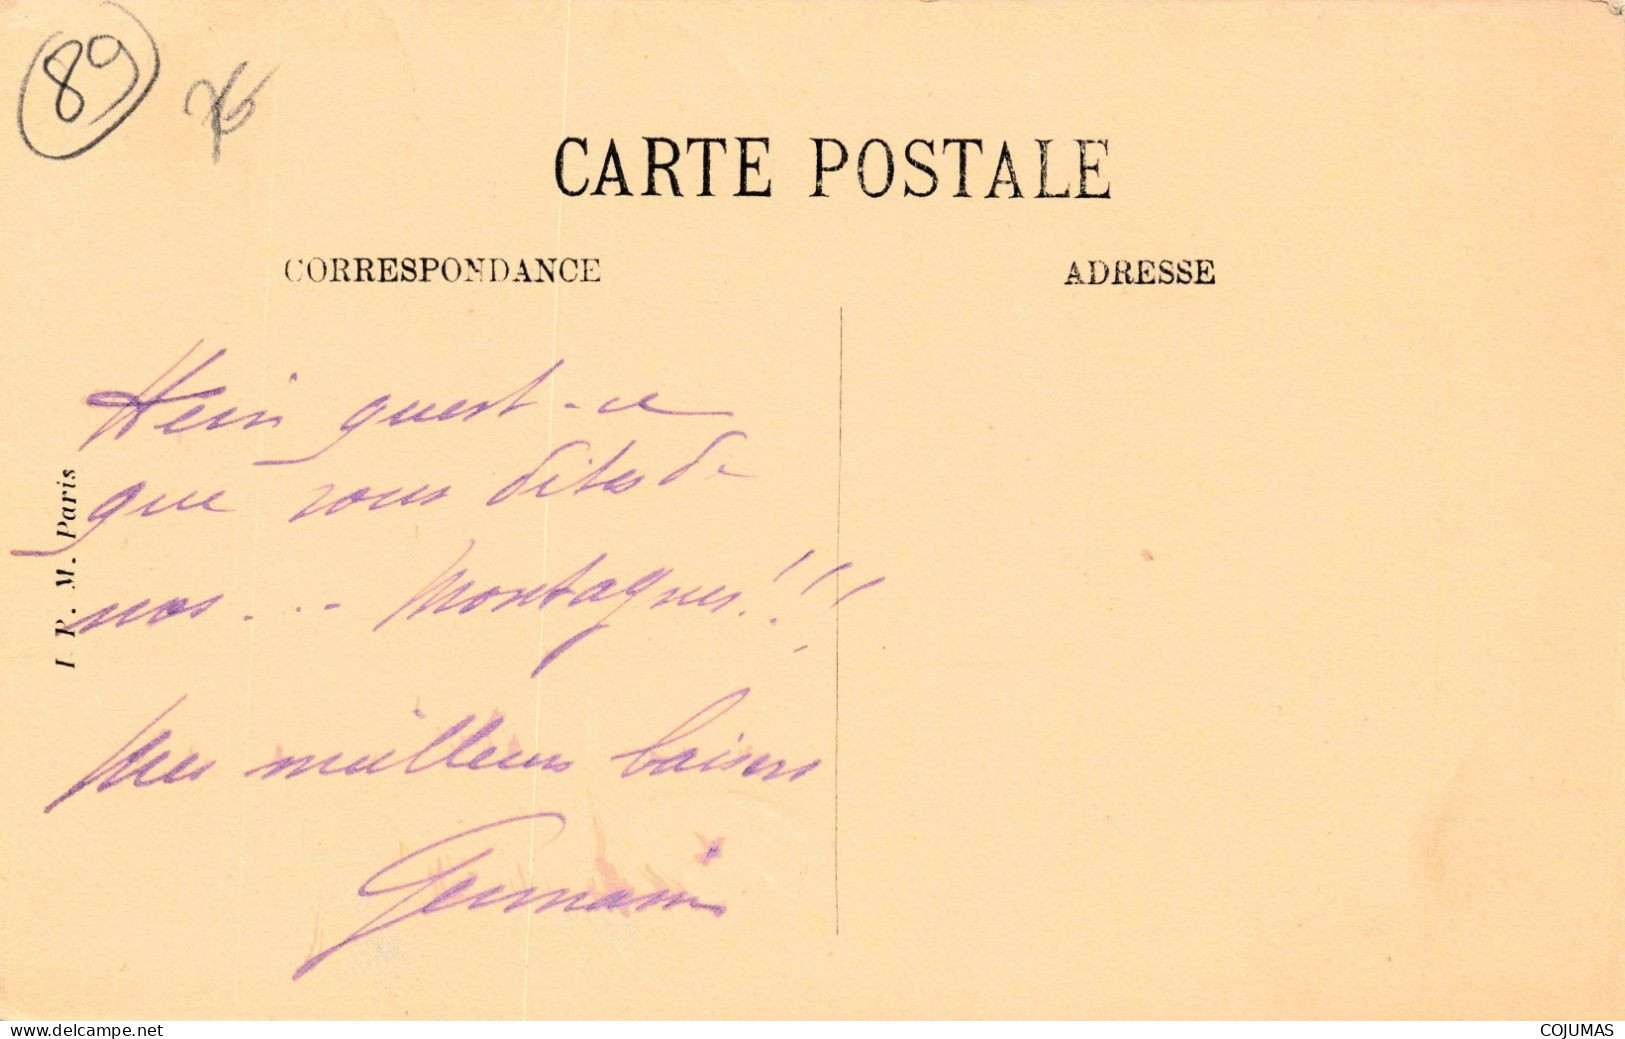 89
CARTE POSTALE
CORRESPONDANCE
ADRESSE
Hein qu'est-ce
que vous dites de
nos... Montagnes!!!
Mes meilleurs baisers
Germain
I. P. M. Paris
www.delcampe.net
COJUMAS